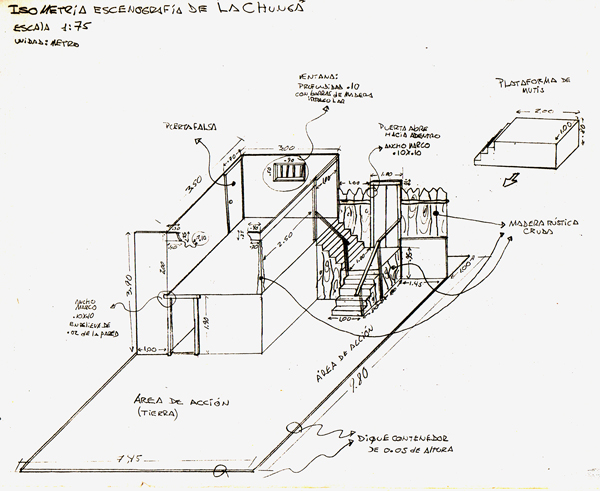 ISOMETRÍA ESCENOGRAFÍA DE LA CHUNGA
ESCALA 1:75
UNIDAD: METRO
VENTANA:
PROFUNDIDAD .10
CON BARRAS DE MADERA
IRREGULAR
PLATAFORMA DE
MUTIS
2.00
1.00
.80
PUERTA FALSA
PUERTA ABRE
HACIA ADENTRO
ANCHO MARCO
.10X.10
3.00
3.50
.80
.90
1.00
1.80
MADERA RÚSTICA
CRUDA
2.50
3.90
2.00
ANCHO
MARCO
.10X.10
EN RELIEVE DE
.02 DE LA PARED
1.90
1.00
1.00
1.45
1.00
ÁREA DE ACCIÓN
(TIERRA)
ÁREA DE ACCIÓN
9.80
7.45
DIQUE CONTENEDOR
DE 0.05 DE ALTURA